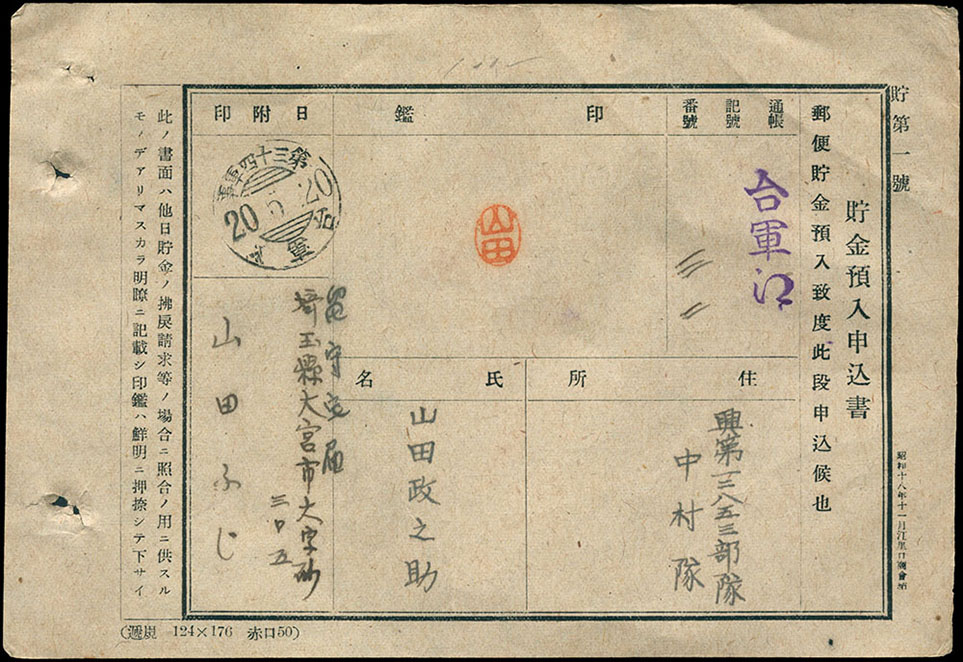 貯第一號
貯金預入申込書
昭和十八年十一月江里口商會納
郵便貯金預入致度此段申込候也
通帳
記號
番號
台軍江
三二
印鑑
山田
日附印
第三十四軍事
20 5 20
台軍
住所
興第一三八五三部隊
中村隊
氏名
山田政之助
留守宅届
埼玉縣大宮市大字砂
三〇五
山田ふじ
此ノ書面ハ他日貯金ノ拂戾請求等ノ場合ニ照合ノ用ニ供スル
モノデアリマスカラ明瞭ニ記載シ印鑑ハ鮮明ニ押捺シテ下サイ
124×176 赤口50)